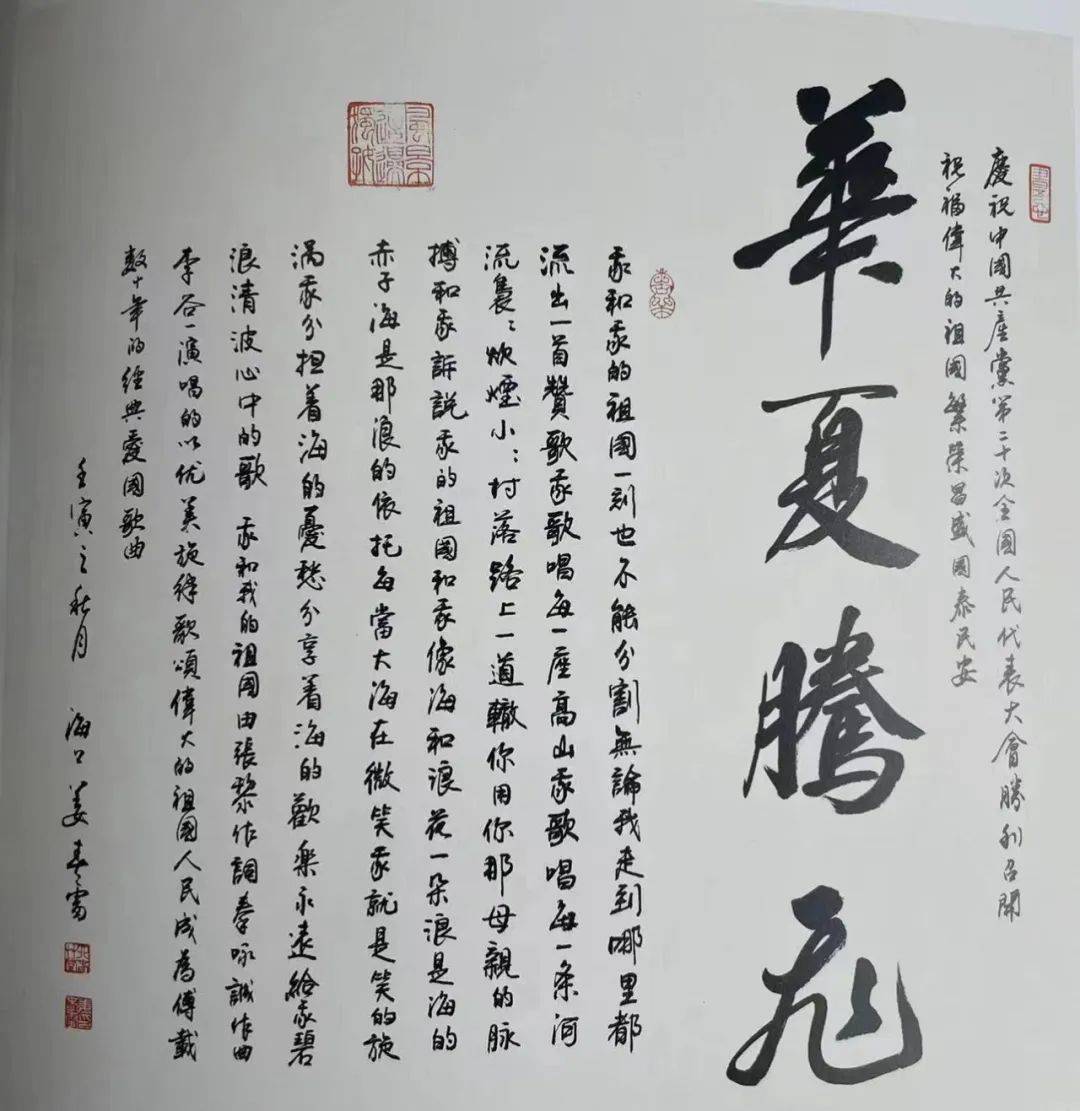 慶祝中國共產黨第二十次全國人民代表大會勝利召開
祝福偉大的祖國繁榮昌盛國泰民安
華夏騰飛
我和我的祖國一刻也不能分割無論我走到哪里都
流出一首贊歌我歌唱每一座高山我歌唱每一条河
流裊：炊煙小：村落路上一道轍你用你那母親的脉
搏和我訴説我的祖國和我像海和浪花一朵浪是海的
赤子海是那浪的依托每當大海在微笑我就是笑的旋
渦我分担着海的憂愁分享着海的歡樂永遠給我碧
浪清波心中的歌 我和我的祖國由張黎作詞秦咏誠作曲
李谷一演唱的以优美旋律歌頌偉大的祖國人民成為傳載
數十年的經典愛國歌曲
風景這邊獨好
壬寅之秋月 海口姜春